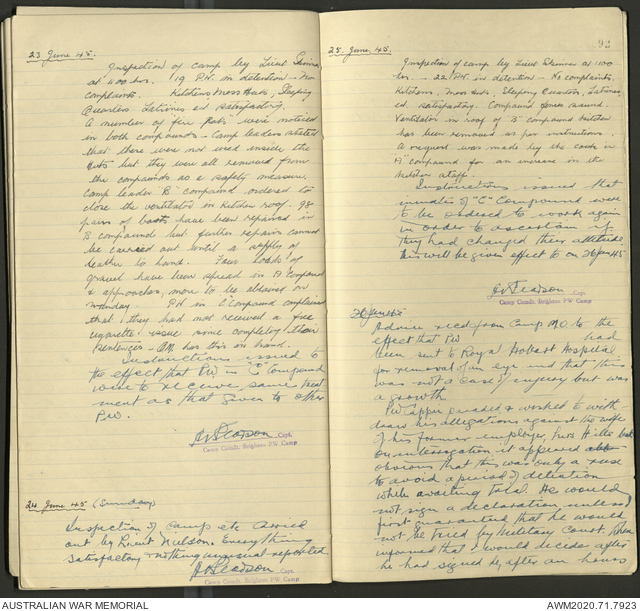 23 June 45.
Inspection of camp by Lieut Skinner
at 1100 hrs. 19 P.W. in detention - no
complaints. Kitchens Mess Huts, Sleeping
Quarters Latrines ed satisfactory.
A number of fire were noticed
in both compounds - Camp leaders stated
that these were not used inside the
Huts but they were all removed from
the compounds as a safety measure.
Camp leader "B" compound ordered to
close the ventilator in Kitchen roof. 98
pairs of boots have been repaired in
B compound but further repairs cannot
be carried out until a supply of
leather to hand. Four loads of
gravel have been spread in A Compound
& approaches, more to be obtained on
Monday. P.W. in C compound complained
that they had not received a free
cigarette issue since completing their
sentences - has this on hand.
Instructions issued to
the effect that P.W. in "C" Compound
were to receive same treat
ment as that given to other
P.W.
Capt.
Camp Comdt. Brighton P.W. Camp
24 June 45 (Sunday)
Inspection of Camp etc carried
out by Lieut Neilson. Everything
satisfactory & nothing unusual reported
Capt.
Camp Comdt. Brighton P.W. Camp
92
25 June 45.
Inspection of camp by Lieut Skinner at 1100
hrs. - 22 P.W. in detention - No complaints.
Kitchens, Mess Huts, Sleeping Quarters, Latrines
ed. satisfactory. Compound fences sound.
Ventilator in roof of "B" compound kitchen
has been removed as per instructions.
A request was made by the cooks in
"A" compound for an increase in the
kitchen staff.
Instructions issued that
inmates of "C" Compound were
to be ordered to work again
in order to ascertain if
they had changed their attitude
this will be given effect to on 26 June 45
Capt.
Camp Comdt. Brighton P.W. Camp
26 June 45
Advice recd from Camp M.O. to the
effect that PW had
been sent to Royal Hobart Hospital
for removal of an eye and that this
was not a case of injury but was
a growth.
PW paraded & wished to with
draw his allegations against the wife
of his former employer, Mrs but
on interrogation it appeared
obvious that this was only a ruse
to avoid a period of detention
while awaiting trial. He would
not sign a declaration unless
first guaranteed that he would
not be tried by Military Court. When
informed that I would decide after
he had signed it, after an hours
AUSTRALIAN WAR MEMORIAL
AWM2020.71.7923